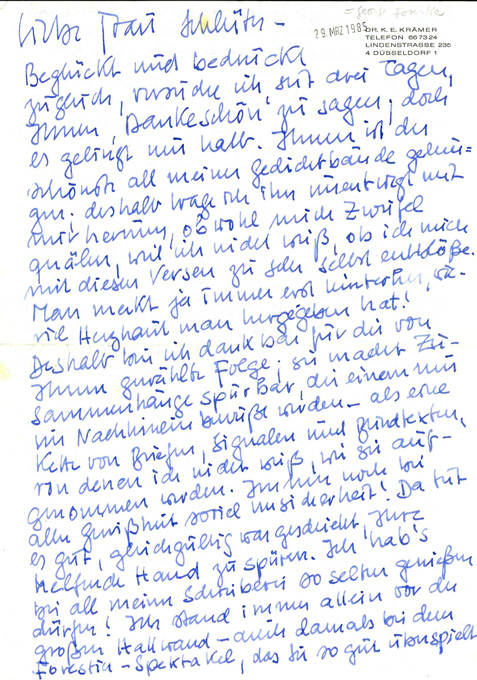 = Georg Forestier
29. MRZ 1985
DR. K. E. KRÄMER
TELEFON 667324
LINDENSTRASSE 235
4 DÜSSELDORF 1
Liebe Frau Schlüter -
Beglückt und bedrückt
zugleich, versuche ich seit drei Tagen,
Ihnen 'Dankeschön' zu sagen; doch
es gelingt nur halb. Ihnen ist der
schönste all meiner Gedichtbände gelun-
gen; deshalb trage ich ihn unentwegt mit
mir herum, obwohl mich Zweifel
quälen, weil ich nicht weiß, ob ich mich
mit diesen Versen zu sehr selbst entblöße.
Man merkt ja immer erst hinterher, wie-
viel Herzhaut man hergegeben hat!
Deshalb bin ich dankbar für die von
Ihnen gewählte Folge; sie macht Zu-
sammenhänge spürbar, die einem nur
im Nachhinein bewußt werden - als eine
Kette von Briefen, Signalen und Blindtexten,
von denen ich nicht weiß, wie sie auf-
genommen werden. Immer noch bei
aller Gewißheit soviel Unsicherheit! Da tut
es gut, gleichgültig was geschieht, Ihre
helfende Hand zu spüren. Ich hab's
bei all meiner Schreiberei so selten genießen
dürfen! Ich stand immer allein vor der
großen Hallwand - auch damals bei dem
Forestier-Spektakel, das Sie so gut überspielt